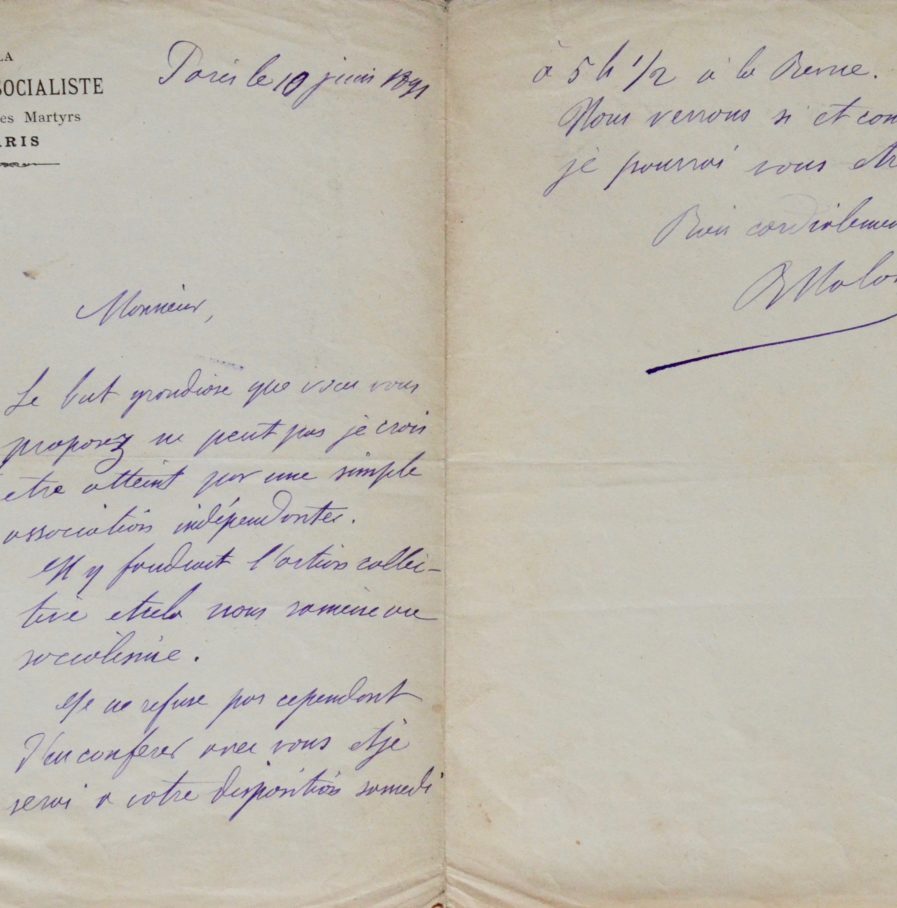 LA
SOCIALISTE
es Martyrs
ARIS
Paris le 10 juin 1891
Monsieur,
Le but grandiose que vous
proposez ne peut pas je crois
etre atteint par une simple
association indépendantes.
Il y faudrait l'action collec-
tive et cela nous ramène au
socialisme.
Je ne refuse pas cependant
d'en conférer avec vous et je
serai a votre disposition samedi
à 5 h 1/2 à la Revue.
Nous verrons si et com
je pourrai vous etr
Bien cordialemen
B Malon